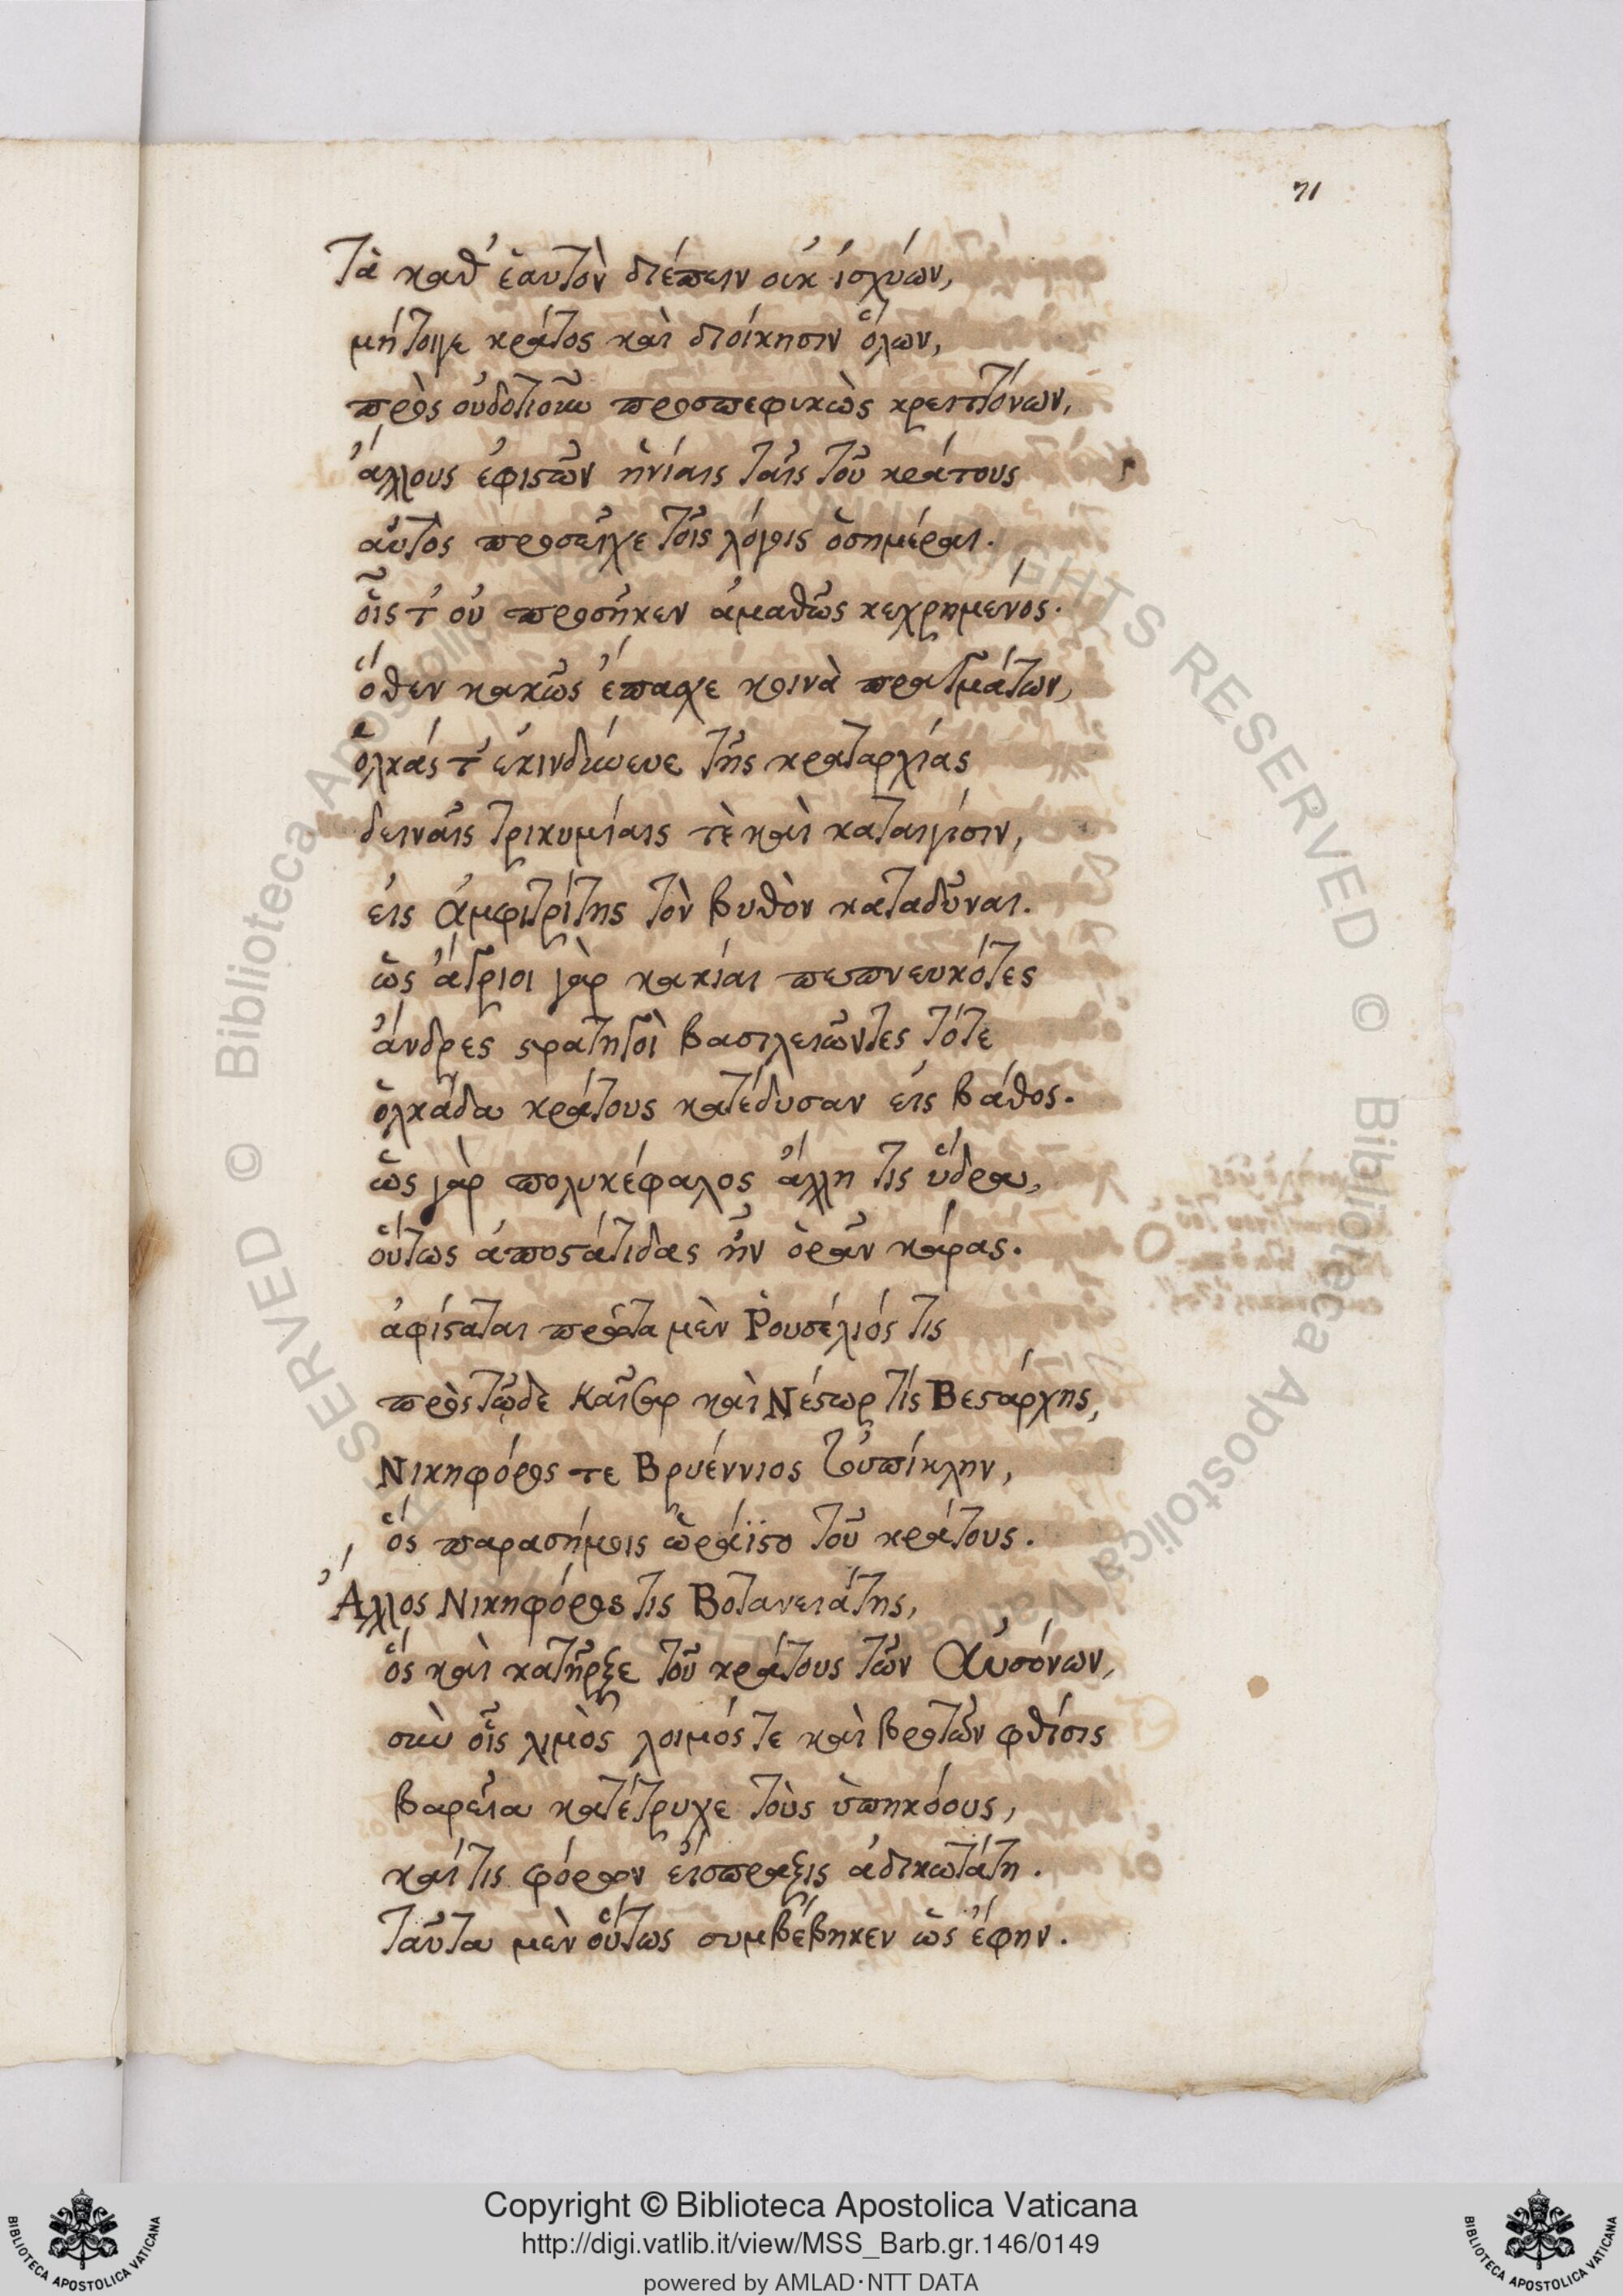 71
Τὰ καθ' ἑαυτὸν διέπειν οὐκ ἰσχύων,
μήτοιγε κράτος καὶ διοίκησιν ὅλων,
πρὸς οὐδοτιοῦν προσπεφικὼς κρειττόνων,
ἄλλους ἐφιστῶν ἡνίαις ταῖς τοῦ κράτους
αὐτὸς προσεῖχε τοῖς λόγοις ὁσημέραι.
οἷς τ' οὐ προσῆκεν ἀμαθῶς κεχρημένος.
ὅθεν κακῶς ἔπασχε κοινὰ πραγμάτων,
ὁλκάς τ' ἐκινδύνευε τῆς κραταρχίας
δειναῖς τρικυμίαις τὲ καὶ καταιγίσιν,
εἰς Ἀμφιτρίτης τὸν βυθὸν καταδῦναι.
ὡς ἄγριοι γὰρ κακίαι πεπνευκότες
ἄνδρες στρατηγοὶ βασιλειῶντες τότε
ὁλκάδα κράτους κατέδυσαν εἰς βάθος.
ὡς γὰρ πολυκέφαλος ἄλλη τις ὕδρα,
οὕτως ἀποστάτιδας ἦν ὁρᾶν κάρας.
ἀφίσταται πρῶτα μὲν Ῥουσέλιός τις
πρὸς τῷδε Καῖσαρ καὶ Νέστωρ τίς Βεστάρχης,
Νικηφόρος τε Βρυέννιος τοὐπίκλην,
ὃς παρασήμοις ὡράϊστο τοῦ κράτους.
Ἄλλος Νικηφόρος τις Βοτανειάτης,
ὃς καὶ κατῆρξε τοῦ κράτους τῶν Αὐσόνων,
σὺν οἷς λιμὸς λοιμός τε καὶ βροτῶν φθίσις
βαρεῖα κατέτρυχε τοὺς ὑπηκόους,
καί τις φόρων εἴσπραξις ἀδικωτάτη.
Ταῦτα μὲν οὕτως συμβέβηκεν ὡς ἔφην.
© Biblioteca Apostolica Vaticana ALL RIGHTS RESERVED © Biblioteca Apostolica Vaticana ALL RIGHTS RESERVED
Copyright © Biblioteca Apostolica Vaticana
http://digi.vatlib.it/view/MSS_Barb.gr.146/0149
powered by AMLAD·NTT DATA
BIBLIOTECA APOSTOLICA VATICANA
BIBLIOTECA APOSTOLICA VATICANA